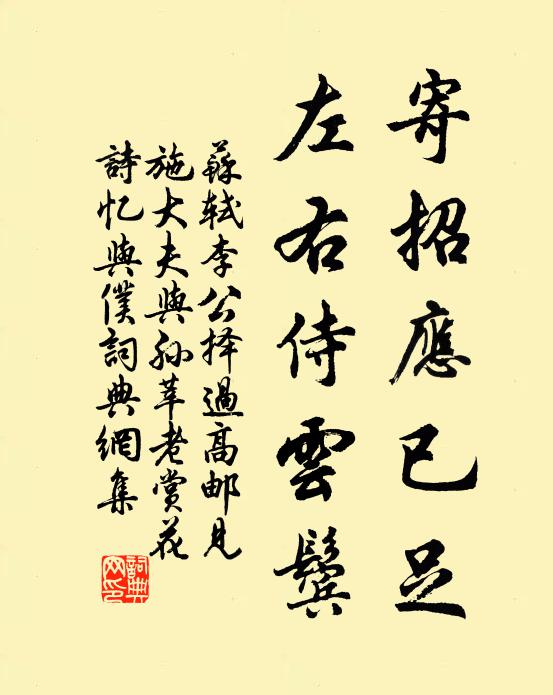 寄招應已足
左右侍雲鬢
蘇軾李公择過高邮見
施大夫與孙莘老赏花
詩忆與僕詞典網集
詞典網印